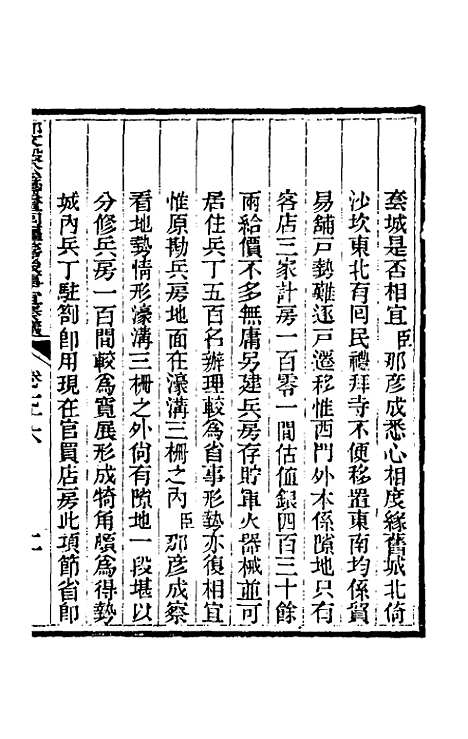 套城是否相宜臣那彥成悉心相度緣舊城北倚
沙坎東北有回民禮拜寺不便移置東南均係貿
易舖戶勢難逐戶遷移惟西門外本係隙地只有
客店三家計房一百零一間估值銀四百三十餘
兩給價不多無庸另建兵房存貯軍火器械並可
居住兵丁五百名辦理較為省事形勢亦復相宜
惟原勘兵房地面在濠溝三柵之內臣那彥成察
看地勢情形濠溝三柵之外尙有隙地一段堪以
分修兵房一百間較為寬展形成犄角頗為得勢
城內兵丁駐劄卽用現在官買店房此項節省卽
卷七十六
二